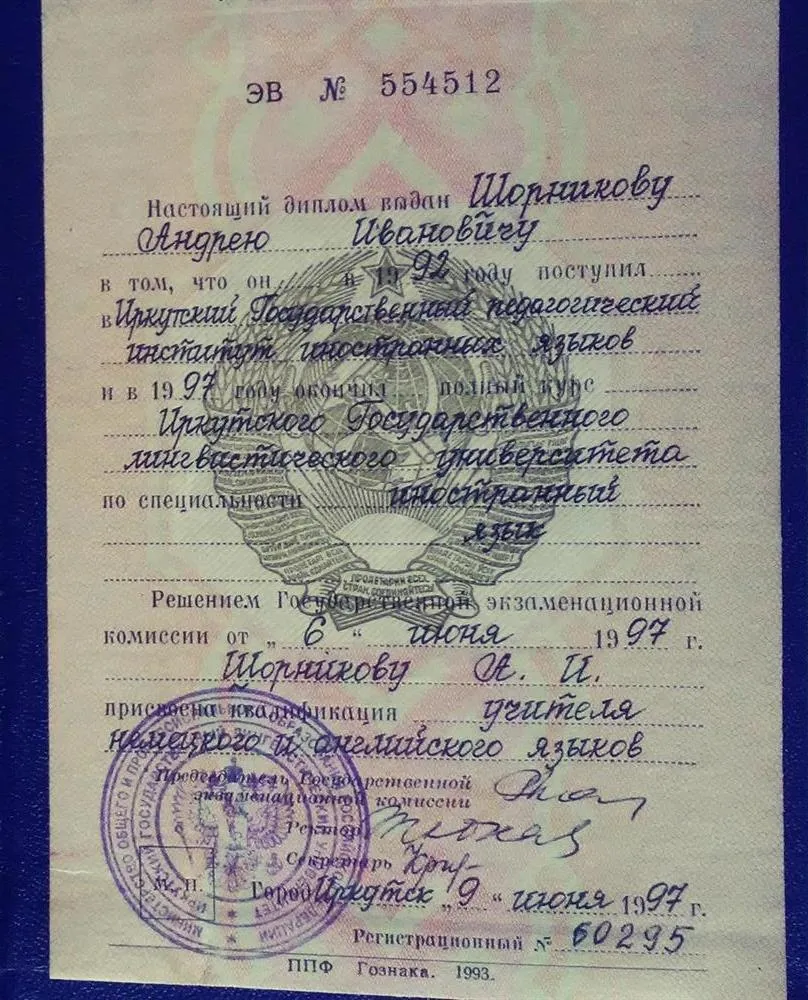 ЭВ № 554512
Настоящий диплом выдан Шорникову
Андрею Ивановичу
в том, что он в 1992 году поступил
в Иркутский Государственный педагогический
институт иностранных языков
и в 1997 году окончил полный курс
Иркутского Государственного
лингвистического университета
по специальности иностранный
язык
ПРОЛЕТАРИИ ВСЕХ
СТРАН, СОЕДИНЯЙТЕСЬ!
Решением Государственной экзаменационной
комиссии от „ 6 “ июня 1997 г.
Шорникову А. И.
присвоена квалификация учителя
немецкого и английского языков
Председатель Государственной
экзаменационной комиссии
Ректор
Секретарь
М. П.
Город Иркутск „ 9 “ июня 1997 г.
Регистрационный № 60295
ППФ Гознака. 1993.